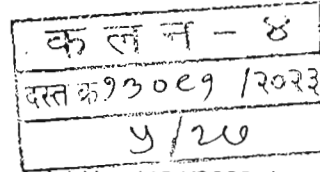 क ल न - ४
दस्त क्र१३०८१ /२०२३
५/२७